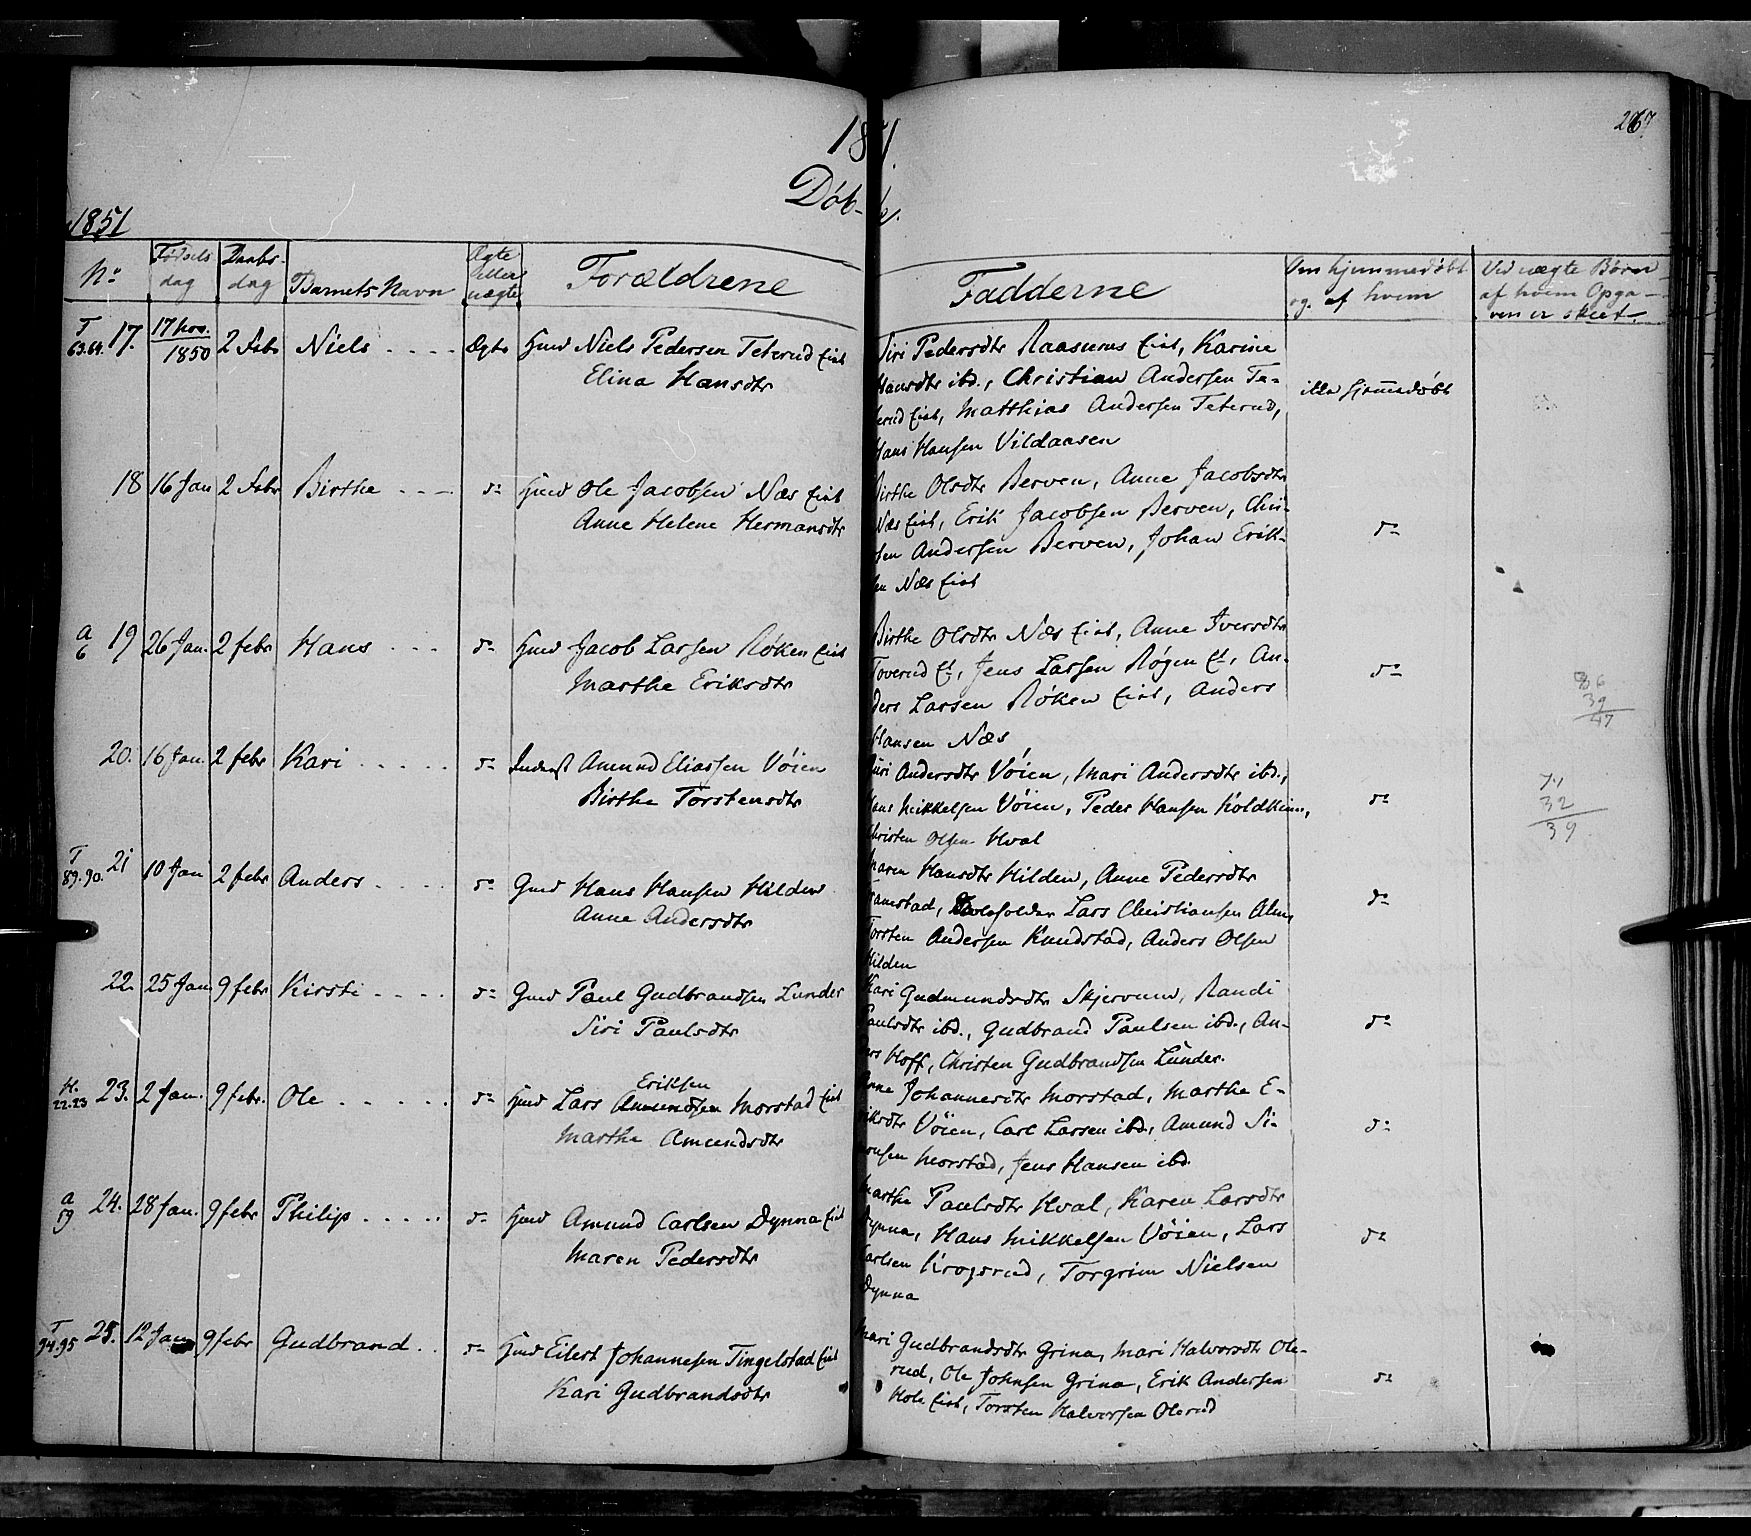 267
1851.
Døbte.
1851
No Fødselsdag Daabsdag Barnets Navn Ægte eller uægte Forældrene Fadderne Om hjemmedøbt og af hvem Ved uægte Børn af hvem Opgaven er skeet.
T 63.64. 17. 17 Nov. 1850 2 Febr Niels Ægte Hmd Niels Pedersen Teterud Eiet
Elina Hansdtr
Siri Pedersdtr Raasums Eiet, Karine
Hansdtr ibd., Christian Andersen Te-
terud Eiet, Matthias Andersen Teterud,
Hans Hansen Vildaasen
ikke hjemmedøbt
18 16 Jan 2 Febr Birthe do Hmd Ole Jacobsen Næs Eiet
Anne Helene Hermansdtr
Birthe Olsdtr Berven, Anne Jacobsdtr
Næs Eiet, Erik Jacobsen Berven, Chri-
sten Andersen Berven, Johan Erik-
sen Næs Eiet
do
a 6 19 26 Jan. 2 febr Hans do Hmd Jacob Larsen Røken Eiet
Marthe Eriksdtr
Birthe Olsdtr Næs Eiet, Anne Iversdtr
Toverud Et, Jens Larsen Røgen Et, An-
ders Larsen Røken Eiet, Anders
Hansen Næs
do
86
39
47
20. 16 Jan. 2 febr Kari do Inderst Amund Eliassen Vøien
Birthe Torstensdtr
Siri Andersdtr Vøien, Mari Andersdtr ibd.,
Hans Mikkelsen Vøien, Peder Hansen Koldkinn,
Christen Olsen Hval
do
71
32
39
T 89.90. 21 10 Jan 2 febr Anders do Gmd Hans Hansen Hilden
Anne Andersdtr
Maren Hansdtr Hilden, Anne Pedersdtr
Framstad, Skoleholder Lars Christiansen Alm,
Torsten Andersen Knudstad, Anders Olsen
Hilden
do
22. 25 Jan 9 febr Kirsti do Gmd Paul Gudbrandsen Lunder
Siri Paulsdtr
Kari Gudmundsdtr Skjervum, Randi
Paulsdtr ibd., Gudbrand Paulsen ibd., An-
ders Hoff, Christen Gudbrandsen Lunder.
do
H. 22.23 23. 2 Jan. 9 febr. Ole do Hmd Lars Eriksen Amundsen Morstad Eiet
Marthe Amundsdtr
Anne Johannesdtr Morstad, Marthe E-
riksdtr Vøien, Carl Larsen ibd, Amund Si-
monsen Morstad, Jens Hansen ibd.
do
a 59 24. 28 Jan. 9 febr Philip do Hmd Amund Carlsen Dynna Eiet
Maren Pedersdtr
Marthe Paulsdtr Hval, Karen Larsdtr
Dynna, Hans Mikkelsen Vøien, Lars
Carlsen Krogsrud, Torgrim Nielsen
Dynna
do
T 94.95 25. 12 Jan 9 febr Gudbrand do Hmd Eilert Johannesen Tingelstad Eiet
Kari Gudbrandsdtr
Mari Gudbrandsdtr Grina, Mari Halvorsdtr Ole-
rud, Ole Johnsen Grina, Erik Andersen
Hole Eiet, Torsten Halvorsen Olerud
do